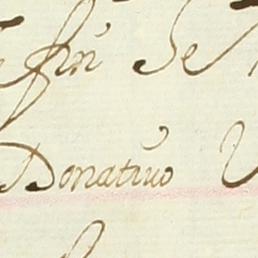 fin Se
Donativo